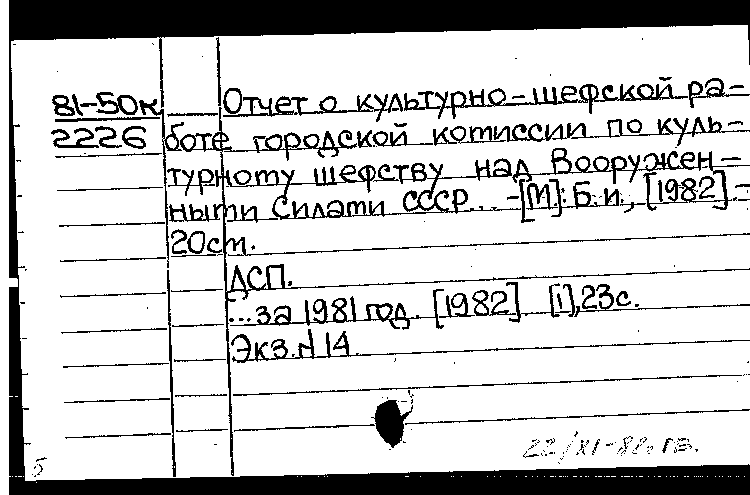 81-50к Отчет о культурно-шефской ра-
2226 боте городской комиссии по куль-
турному шефству над Вооружен-
ными Силами СССР... -[М]: Б.и., [1982].-
20см.
ДСП.
...за 1981 год. [1982]. [1], 23с.
Экз. N 14.
22/XI-82.
б